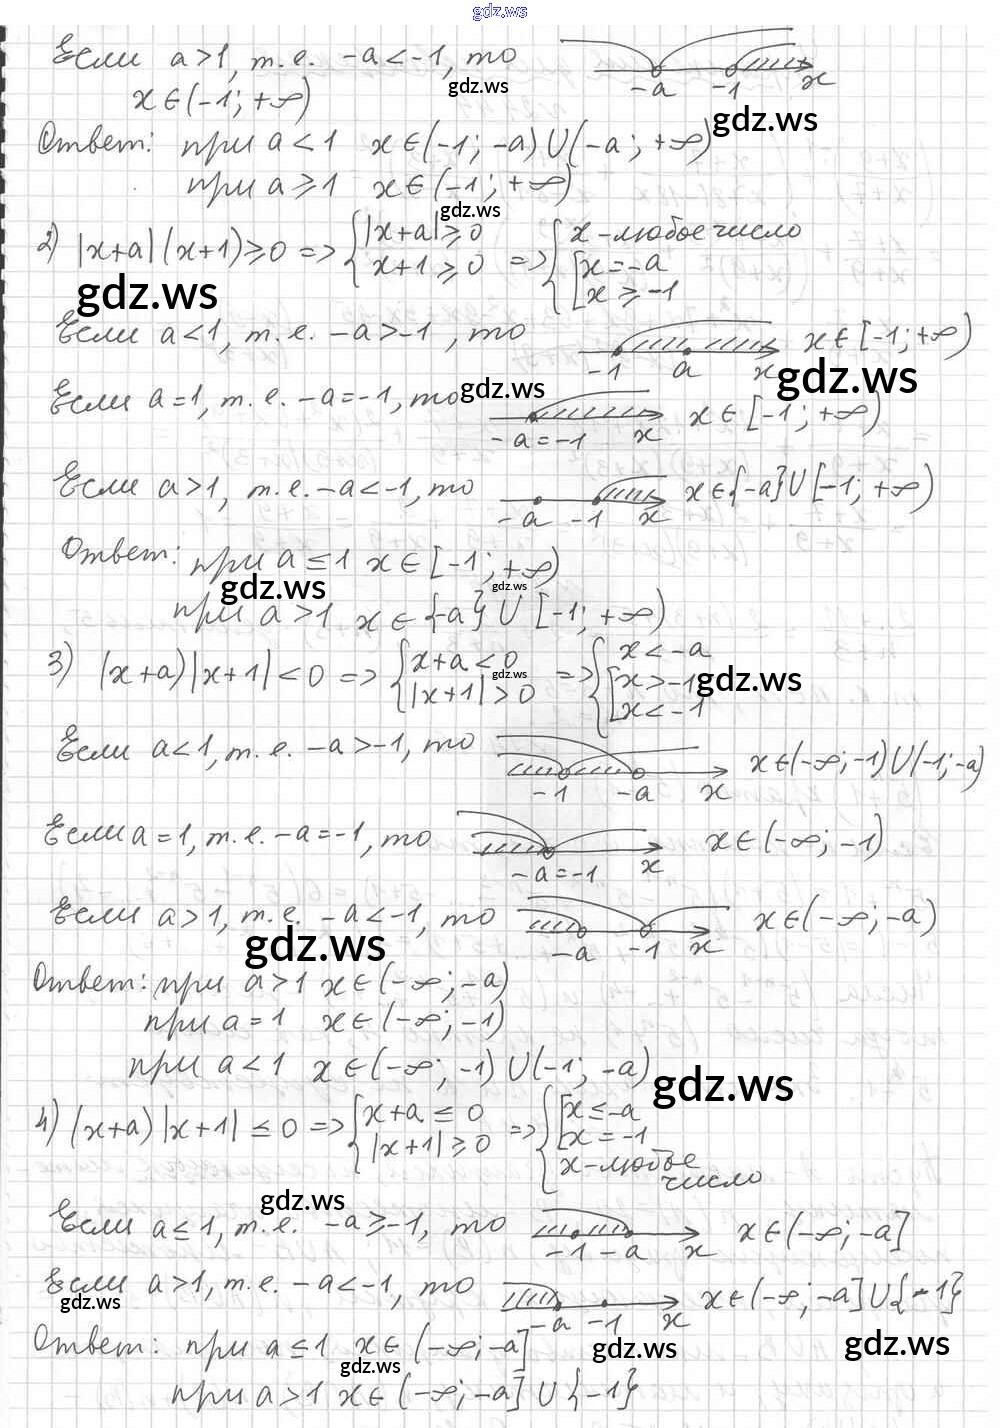 gdz.ws
Если a>1, т.е. -a<-1, то -a -1 x
gdz.ws
x∈(-1; +∞)
gdz.ws
Ответ: при a<1 x∈(-1; -a)∪(-a; +∞)
при a≥1 x∈(-1; +∞)
gdz.ws
2) |x+a|(x+1)≥0 => {|x+a|≥0 x+1≥0 => {x-любое число [x=-a x≥-1
gdz.ws
Если a<1, т.е. -a>-1, то -1 a x x∈[-1; +∞)
gdz.ws
Если a=1, т.е. -a=-1, то -a=-1 x x∈[-1; +∞)
gdz.ws
Если a>1, т.е. -a<-1, то -a -1 x x∈{-a}∪[-1; +∞)
Ответ: при a≤1 x∈[-1; +∞)
gdz.ws
gdz.ws
при a>1 x∈{-a}∪[-1; +∞)
3) (x+a)|x+1|<0 => {x+a<0 |x+1|>0 => {x<-a [x>-1 x<-1
gdz.ws
gdz.ws
Если a<1, т.е. -a>-1, то -1 -a x x∈(-∞; -1)∪(-1; -a)
Если a=1, т.е. -a=-1, то -a=-1 x x∈(-∞; -1)
Если a>1, т.е. -a<-1, то -a -1 x x∈(-∞; -a)
gdz.ws
Ответ: при a>1 x∈(-∞; -a)
при a=1 x∈(-∞; -1)
при a<1 x∈(-∞; -1)∪(-1; -a)
gdz.ws
4) (x+a)|x+1|≤0 => {x+a≤0 |x+1|≥0 => {[x≤-a x=-1 x-любое число
gdz.ws
Если a≤1, т.е. -a≥-1, то -1 -a x x∈(-∞; -a]
Если a>1, т.е. -a<-1, то -a -1 x x∈(-∞; -a]∪{-1}
gdz.ws
Ответ: при a≤1 x∈(-∞; -a]
gdz.ws
gdz.ws
gdz.ws
при a>1 x∈(-∞; -a]∪{-1}